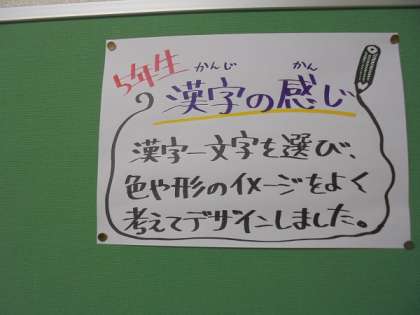 5年生
漢字の感じ
かんじ かん
漢字一文字を選び、
色や形のイメージをよく
考えてデザインしました。